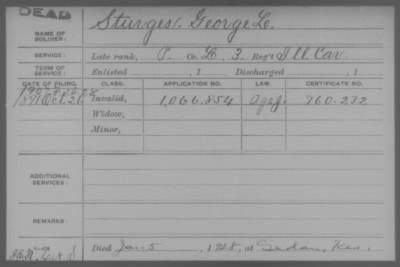 DEAD
NAME OF SOLDIER: Sturges, George L.
SERVICE: Late rank, P. Co. L, 3 Reg't Ill. Cav.
TERM OF SERVICE: Enlisted , 1 Discharged , 1
DATE OF FILING. CLASS. APPLICATION NO. LAW. CERTIFICATE NO.
1891 Oct. 26 Invalid, 1,066.854 760.232
Widow,
Minor,
ADDITIONAL SERVICES:
REMARKS:
Died Jan 5, 1928, at Sedan, Kas.